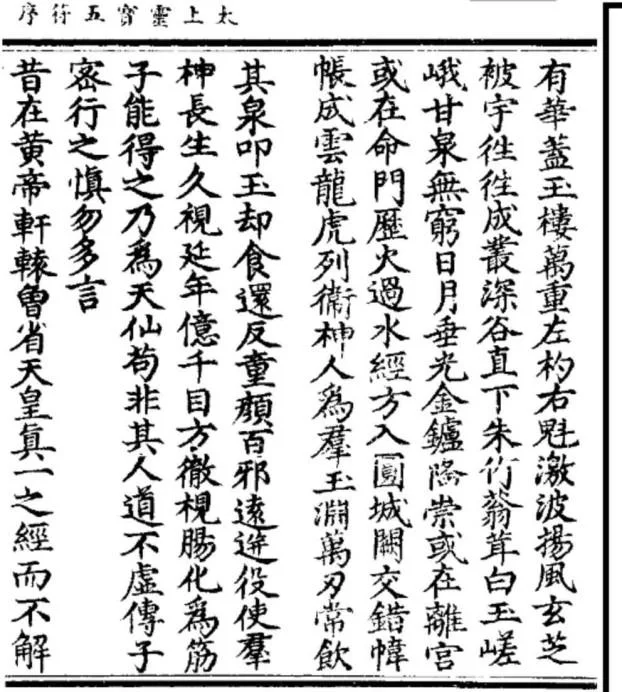 太上靈寶五符序
有華蓋玉樓萬重左杓右魁激波揚風玄芝
被宇往往成叢深谷直下朱竹蓊茸白玉嵯
峨甘泉無窮日月垂光金鑪隆崇或在離宮
或在命門歷火過水經方入圓城闕交錯幃
帳成雲龍虎列衛神人為羣玉淵萬刃常飲
其泉叩玉却食還反童顏百邪遠迸役使羣
神長生久視延年億千目方徹視腸化為筋
子能得之乃為天仙茍非其人道不虛傳子
密行之慎勿多言
昔在黃帝軒轅曾省天皇真一之經而不解